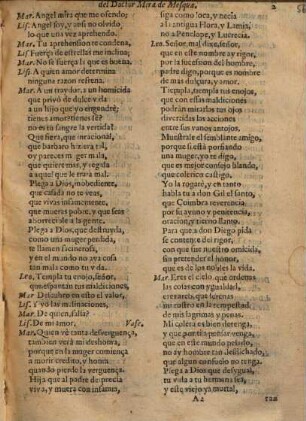 del Doctor Mira de Mesqua. 2
Mar. Angel mira que me ofendes
Lis. Angel soy, y assi no oluido,
lo que una vez aprehendo.
Mar. Tu aprehension te condena,
Lis. Fuerça de estrellas me inclina;
Mar. No se fuerça la que es buena
Lis. A quien amor determina
ninguna razon refrena.
Mar. A un traydor, a un homicida
que priuò de dulce vida
a un hijo que yo engendrè;
tienes amor? tienes fè?
no es tu sangre la vertida?
Que fiera, que irracional,
que barbaro hiziera tal,
oy parece en ti mas mala,
que quieres mas, y regala
a quien a mi me da mal.
Plega a Dios, inobediente,
que casada no te veas,
que viuas infamemente,
que mueras pobre, y que seas
aborrecible a la gente.
Plega a Dios, que destruyda,
como una muger perdida,
te llamen facinerosa,
y en el mundo no aya cosa
tan mala como tu vida.
Leo. Templa tu enojo, señor,
que espantan tus maldiciones,
Mar. Descubro en ella el valor,
Lis. Y yo las mias inclinaciones,
Mar. De quien, falsa?
Lis. De mi amor, Vase.
Mar. Quien vè tanta desverguença,
tambien verà mi deshonra,
porque en la muger comiença
a morir credito, y honra
quando pierde la verguença.
Hija que al padre de precia
viua, y muera con infamia,
siga como loca, y necia
a la antigua Flora, y Lamia,
no a Penelope, y Lucrecia.
Leo. Señor, mal dixe, señor,
que en este nombre ay rigor,
por la sucession del hombre,
padre digo, porque es nombre
de mas dulçura, y amor.
Tiempla, templa tus enojos,
que con essas maldiciones
podràn mirar a tus ojos
diuertidas las acciones
entre sus vanos antojos.
Muestrale el semblante amigo,
porque si està porfiando
una muger, yo te digo,
que es mejor consejo blando,
que colerico castigo.
Yo la rogarè, y en tanto
habla tu a don Gil el santo,
que Coimbra reuerencia
por su ayuno, y penitencia,
oracion, y tierno llanto.
Para que a don Diego pida
se contente del rigor,
con que fue nuestro omicida,
sin pretender esse honor,
que es de los nobles la vida.
Mar. Eres el cielo, que ordena
las cosas con ygualdad,
eres arca, que serena
mi rastro en la tempestad
de mis lagrimas y penas.
Mi colera es bien detenga,
y que por ti a pensar venga,
que en el mundo puede auer,
no ay hombre tan desdichado,
que algun consuelo no tenga.
Plega a Dios que de ygual,
tu vida a tu hermana sea,
y este viejo ya mortal,
A 2 tan